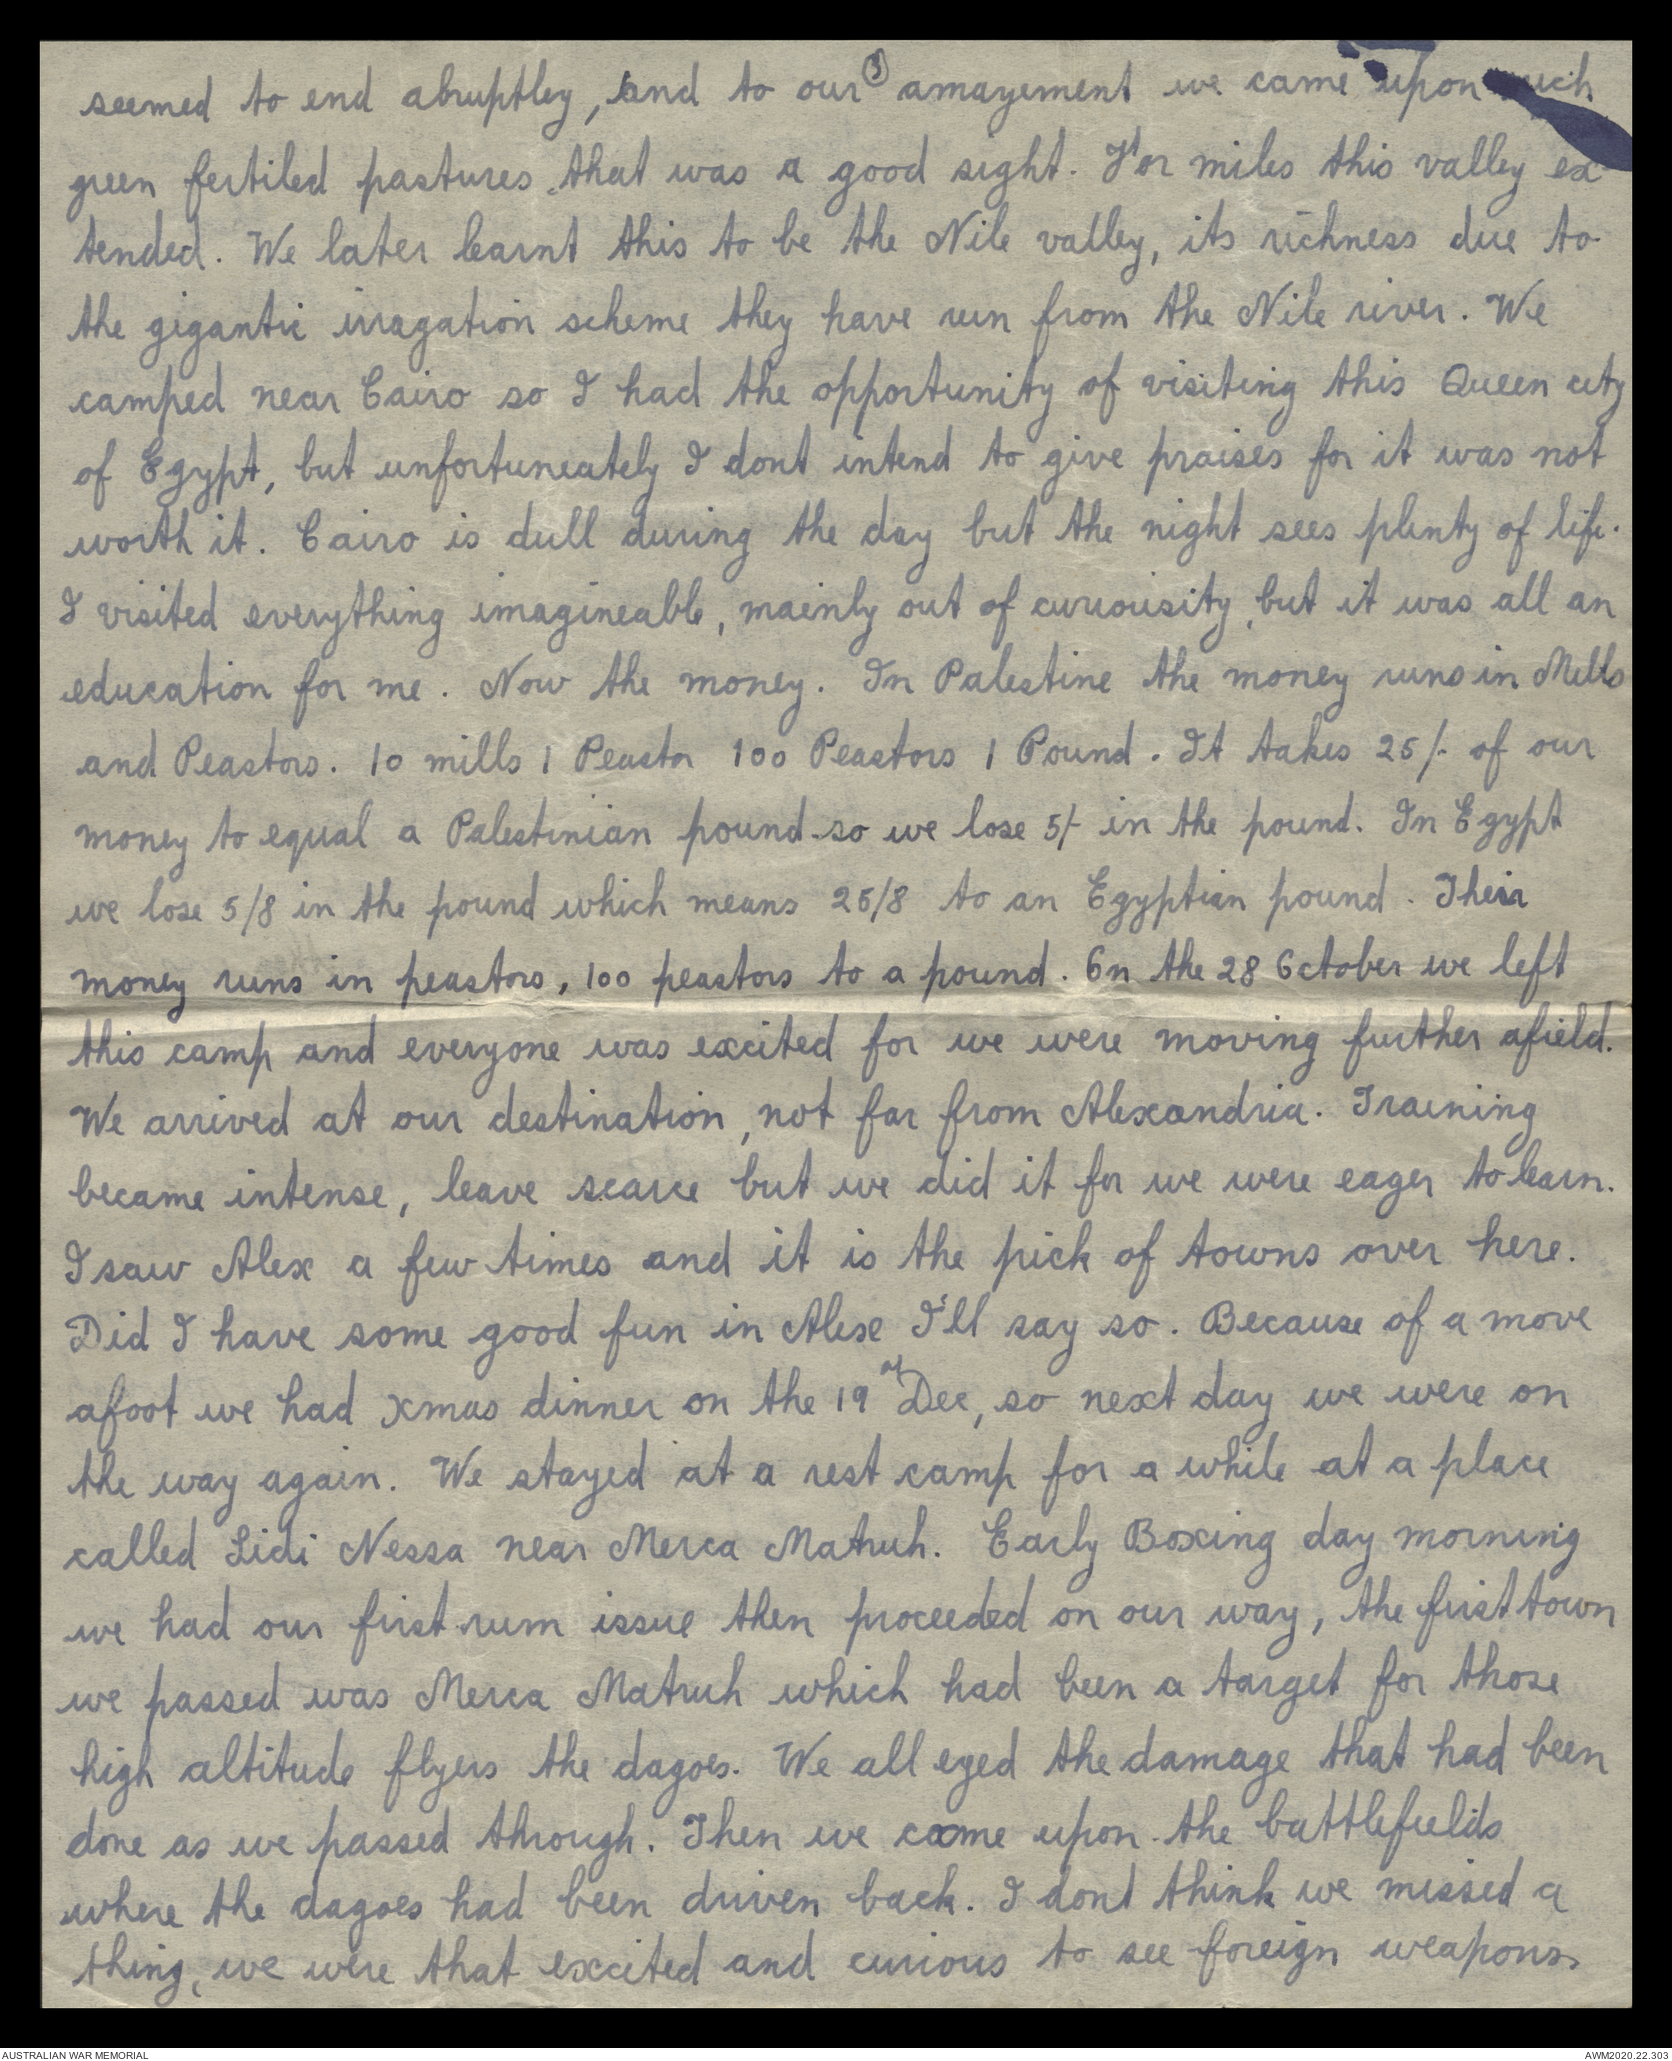 3
seemed to end abruptley, and to our amazement we came upon
green fertiled pastures, that was a good sight. For miles this valley ex-
tended. We later learnt this to be the Nile valley, its richness due to
the gigantic irragation scheme they have run from the Nile river. We
camped near Cairo so I had the opportunity of visiting this Queen city
of Egypt, but unfortuneately I dont intend to give praises for it was not
worth it. Cairo is dull during the day but the night sees plenty of life.
I visited everything imagineable, mainly out of curiousity, but it was all an
education for me. Now the money. In Palestine the money runs in Mills
and Peastors. 10 mills 1 Peastor 100 Peastors 1 Pound. It takes 25/- of our
money to equal a Palestinian pound so we lose 5/- in the pound. In Egypt
we lose 5/8 in the pound which means 25/8 to an Egyptian pound. Their
money runs in peastors, 100 peastors to a pound. On the 28 October we left
this camp and everyone was excited for we were moving further afield.
We arrived at our destination, not far from Alexandria. Training
became intense, leave scarce but we did it for we were eager to learn.
I saw Alex a few times and it is the pick of towns over here.
Did I have some good fun in Alex I'll say so. Because of a move
afoot we had Xmas dinner on the 19 of Dec, so next day we were on
the way again. We stayed at a rest camp for a while at a place
called Sidi Nessa near Merca Matruh. Early Boxing day morning
we had our first rum issue then proceeded on our way, the first town
we passed was Merca Matruh which had been a target for those
high altitude flyers the dagoes. We all eyed the damage that had been
done as we passed through. Then we came upon the battlefields
where the dagoes had been driven back. I dont think we missed a
thing, we were that excited and curious to see foreign weapons.
AUSTRALIAN WAR MEMORIAL
AWM2020.22.303